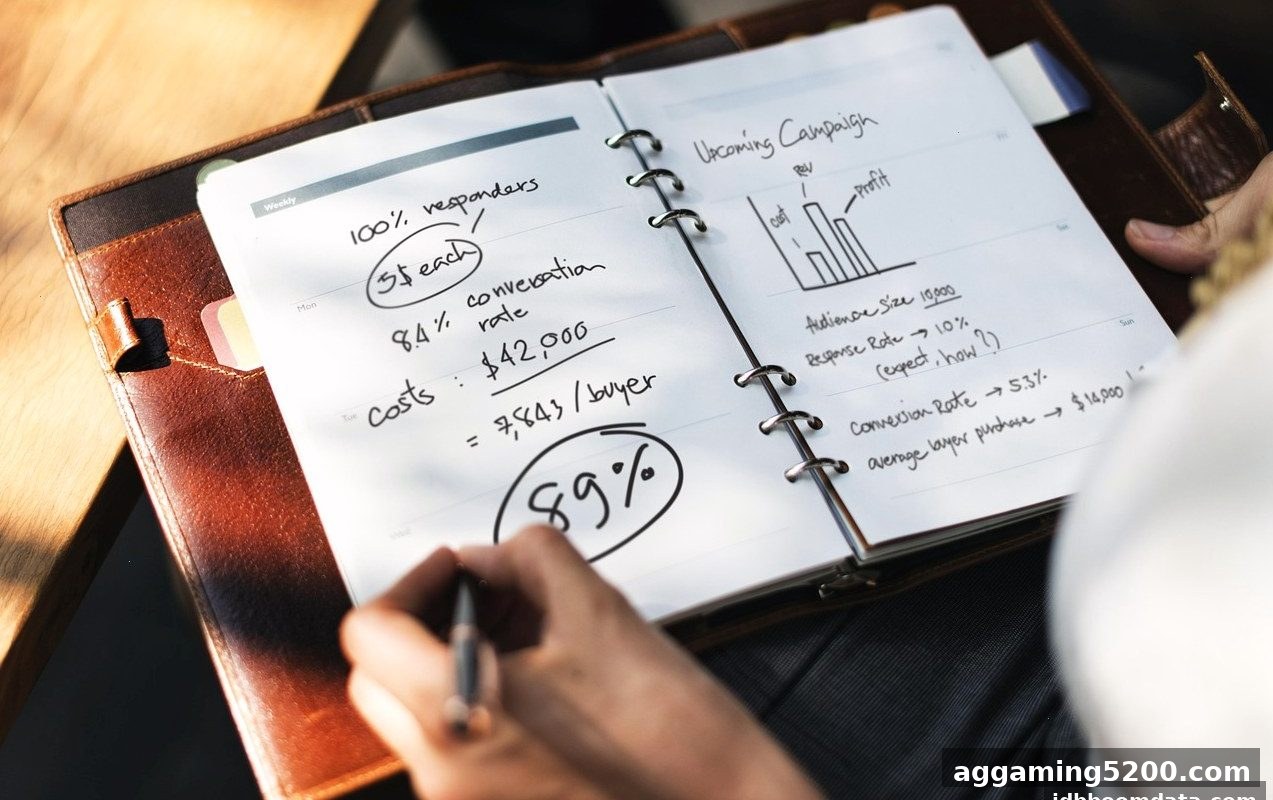 Weekly
100% responders
5$ each
Mon
8.4% conversation
rate
Tue
costs : $42,000
= 7,843 /buyer
89%
Wed
Upcoming Campaign
Rev
cost
Profit
Audience Size 10,000
Response Rate → 10%
(expect, how?)
Conversion Rate → 5.3%
average buyer purchase → $14,000
Fri
Sat
Sun
aggaming5200.com
idbboomdata.com